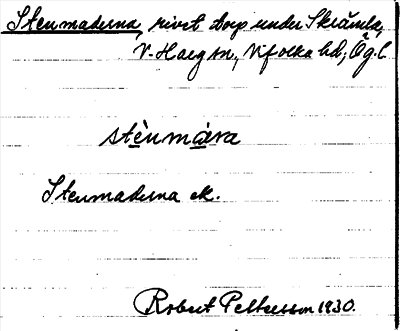 Stenmaderna, rivet torp under Skrämla,
V. Harg sn., Vifolka hd, Ög. l.
stènmàra
Stenmaderna ek.
Robert Pettersson 1930.